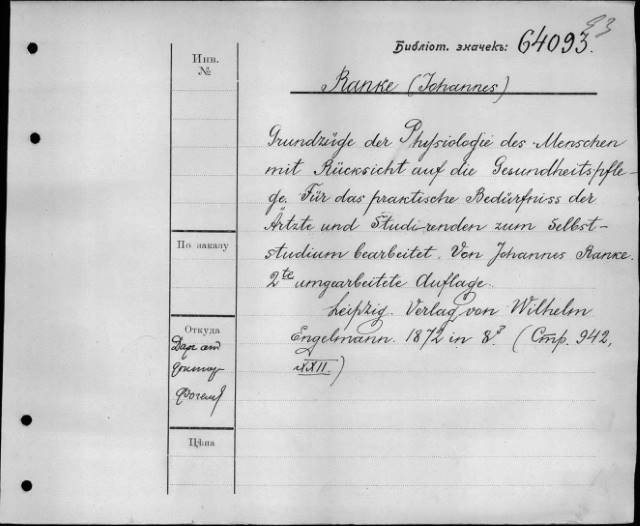 93
Библіот. значекъ: 64093.
Инв.
№
Ranke (Johannes)
Grundzüge der Physiologie des Menschen
mit Rücksicht auf die Gesundheitspfle-
ge. Für das praktische Bedürfniss der
Ärtzte und Studi-renden zum Selbst-
studium bearbeitet. Von Johannes Ranke.
2te umgearbeitete Auflage.
Leipzig. Verlag von Wilhelm
Engelmann. 1872 in 8º. (Стр. 942,
XXII.)
По заказу
Откуда
Даръ
Цѣна